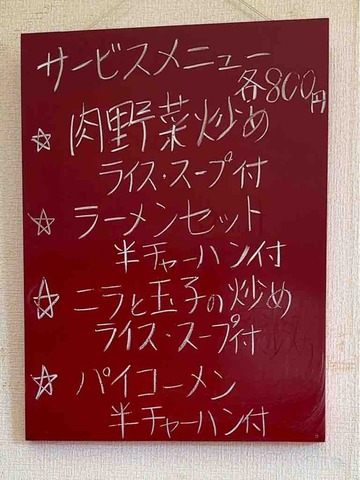 サービスメニュー
各800円
☆ 肉野菜炒め
ライス・スープ付
☆ ラーメンセット
半チャーハン付
☆ ニラと玉子の炒め
ライス・スープ付
☆ パイコーメン
半チャーハン付